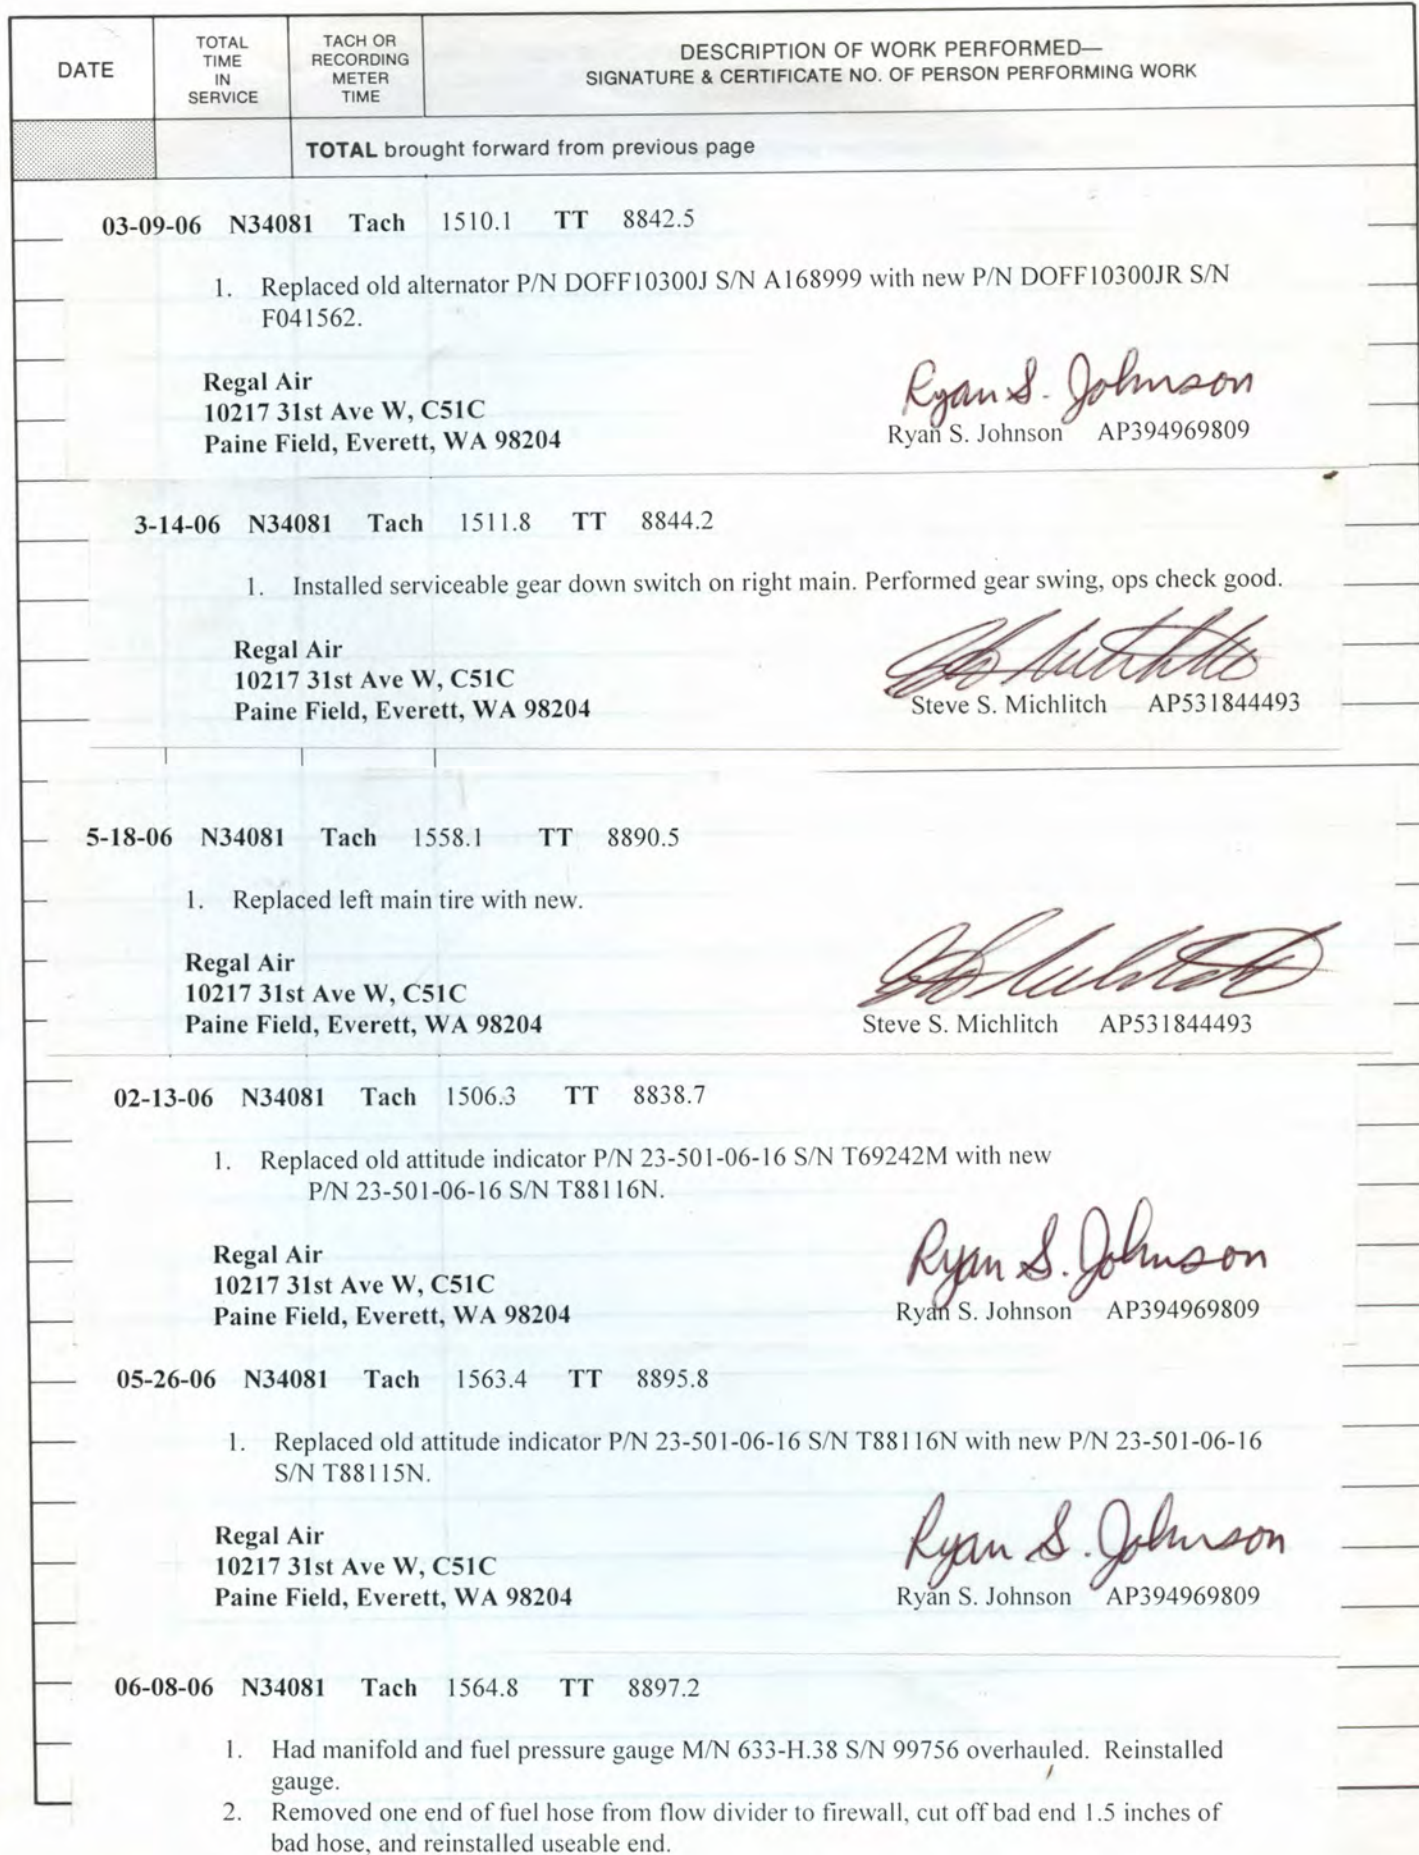 DATE
TOTAL TIME IN SERVICE
TACH OR RECORDING METER TIME
DESCRIPTION OF WORK PERFORMED—
SIGNATURE & CERTIFICATE NO. OF PERSON PERFORMING WORK
TOTAL brought forward from previous page
03-09-06 N34081 Tach 1510.1 TT 8842.5
1. Replaced old alternator P/N DOFF10300J S/N A168999 with new P/N DOFF10300JR S/N
F041562.
Regal Air
10217 31st Ave W, C51C
Paine Field, Everett, WA 98204
Ryan S. Johnson
Ryan S. Johnson AP394969809
3-14-06 N34081 Tach 1511.8 TT 8844.2
1. Installed serviceable gear down switch on right main. Performed gear swing, ops check good.
Regal Air
10217 31st Ave W, C51C
Paine Field, Everett, WA 98204
Steve S. Michlitch AP531844493
5-18-06 N34081 Tach 1558.1 TT 8890.5
1. Replaced left main tire with new.
Regal Air
10217 31st Ave W, C51C
Paine Field, Everett, WA 98204
Steve S. Michlitch AP531844493
02-13-06 N34081 Tach 1506.3 TT 8838.7
1. Replaced old attitude indicator P/N 23-501-06-16 S/N T69242M with new
P/N 23-501-06-16 S/N T88116N.
Regal Air
10217 31st Ave W, C51C
Paine Field, Everett, WA 98204
Ryan S. Johnson
Ryan S. Johnson AP394969809
05-26-06 N34081 Tach 1563.4 TT 8895.8
1. Replaced old attitude indicator P/N 23-501-06-16 S/N T88116N with new P/N 23-501-06-16
S/N T88115N.
Regal Air
10217 31st Ave W, C51C
Paine Field, Everett, WA 98204
Ryan S. Johnson
Ryan S. Johnson AP394969809
06-08-06 N34081 Tach 1564.8 TT 8897.2
1. Had manifold and fuel pressure gauge M/N 633-H.38 S/N 99756 overhauled. Reinstalled
gauge.
2. Removed one end of fuel hose from flow divider to firewall, cut off bad end 1.5 inches of
bad hose, and reinstalled useable end.